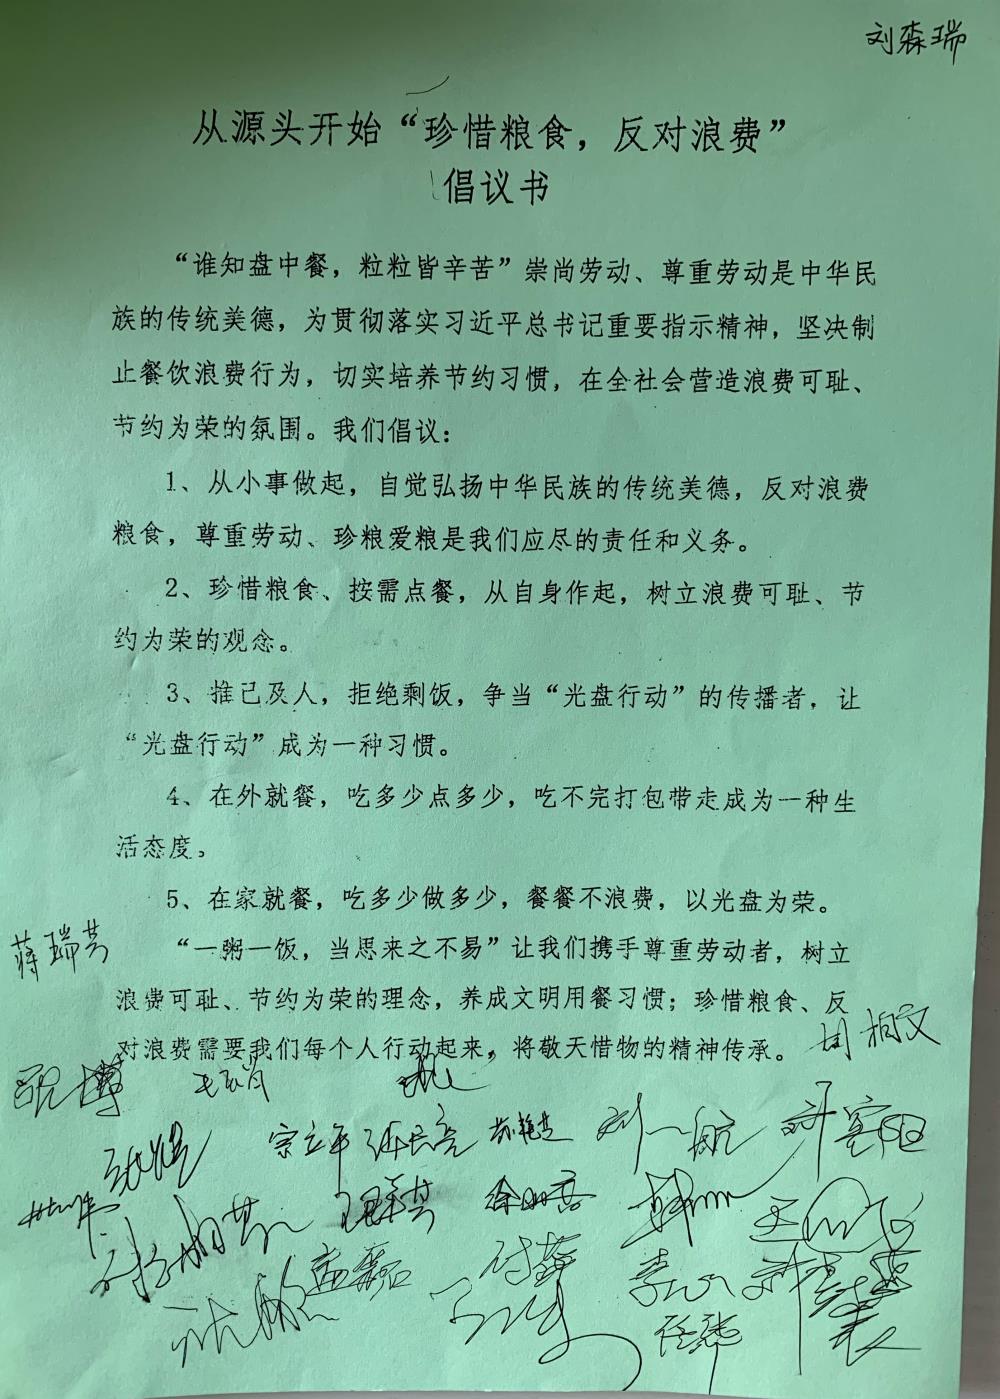 刘森瑞
从源头开始“珍惜粮食，反对浪费”
倡议书
“谁知盘中餐，粒粒皆辛苦”崇尚劳动、尊重劳动是中华民
族的传统美德，为贯彻落实习近平总书记重要指示精神，坚决制
止餐饮浪费行为，切实培养节约习惯，在全社会营造浪费可耻、
节约为荣的氛围。我们倡议：
1、从小事做起，自觉弘扬中华民族的传统美德，反对浪费
粮食，尊重劳动、珍粮爱粮是我们应尽的责任和义务。
2、珍惜粮食、按需点餐，从自身作起，树立浪费可耻、节
约为荣的观念。
3、推己及人，拒绝剩饭，争当“光盘行动”的传播者，让
“光盘行动”成为一种习惯。
4、在外就餐，吃多少点多少，吃不完打包带走成为一种生
活态度。
5、在家就餐，吃多少做多少，餐餐不浪费，以光盘为荣。
“一粥一饭，当思来之不易”让我们携手尊重劳动者，树立
蒋瑞芳
浪费可耻、节约为荣的理念，养成文明用餐习惯；珍惜粮食、反
对浪费需要我们每个人行动起来，将敬天惜物的精神传承。
周柏文
宗立年
刘一航
孟磊